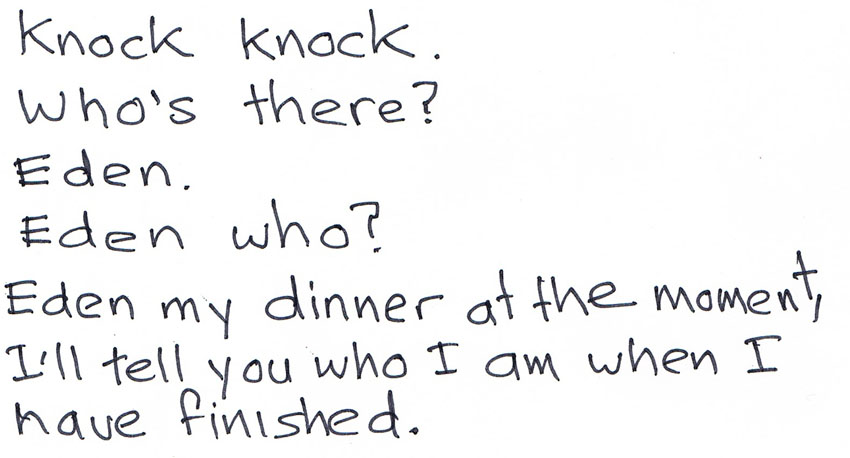 Knock knock.
Who's there?
Eden.
Eden who?
Eden my dinner at the moment,
I'll tell you who I am when I
have finished.